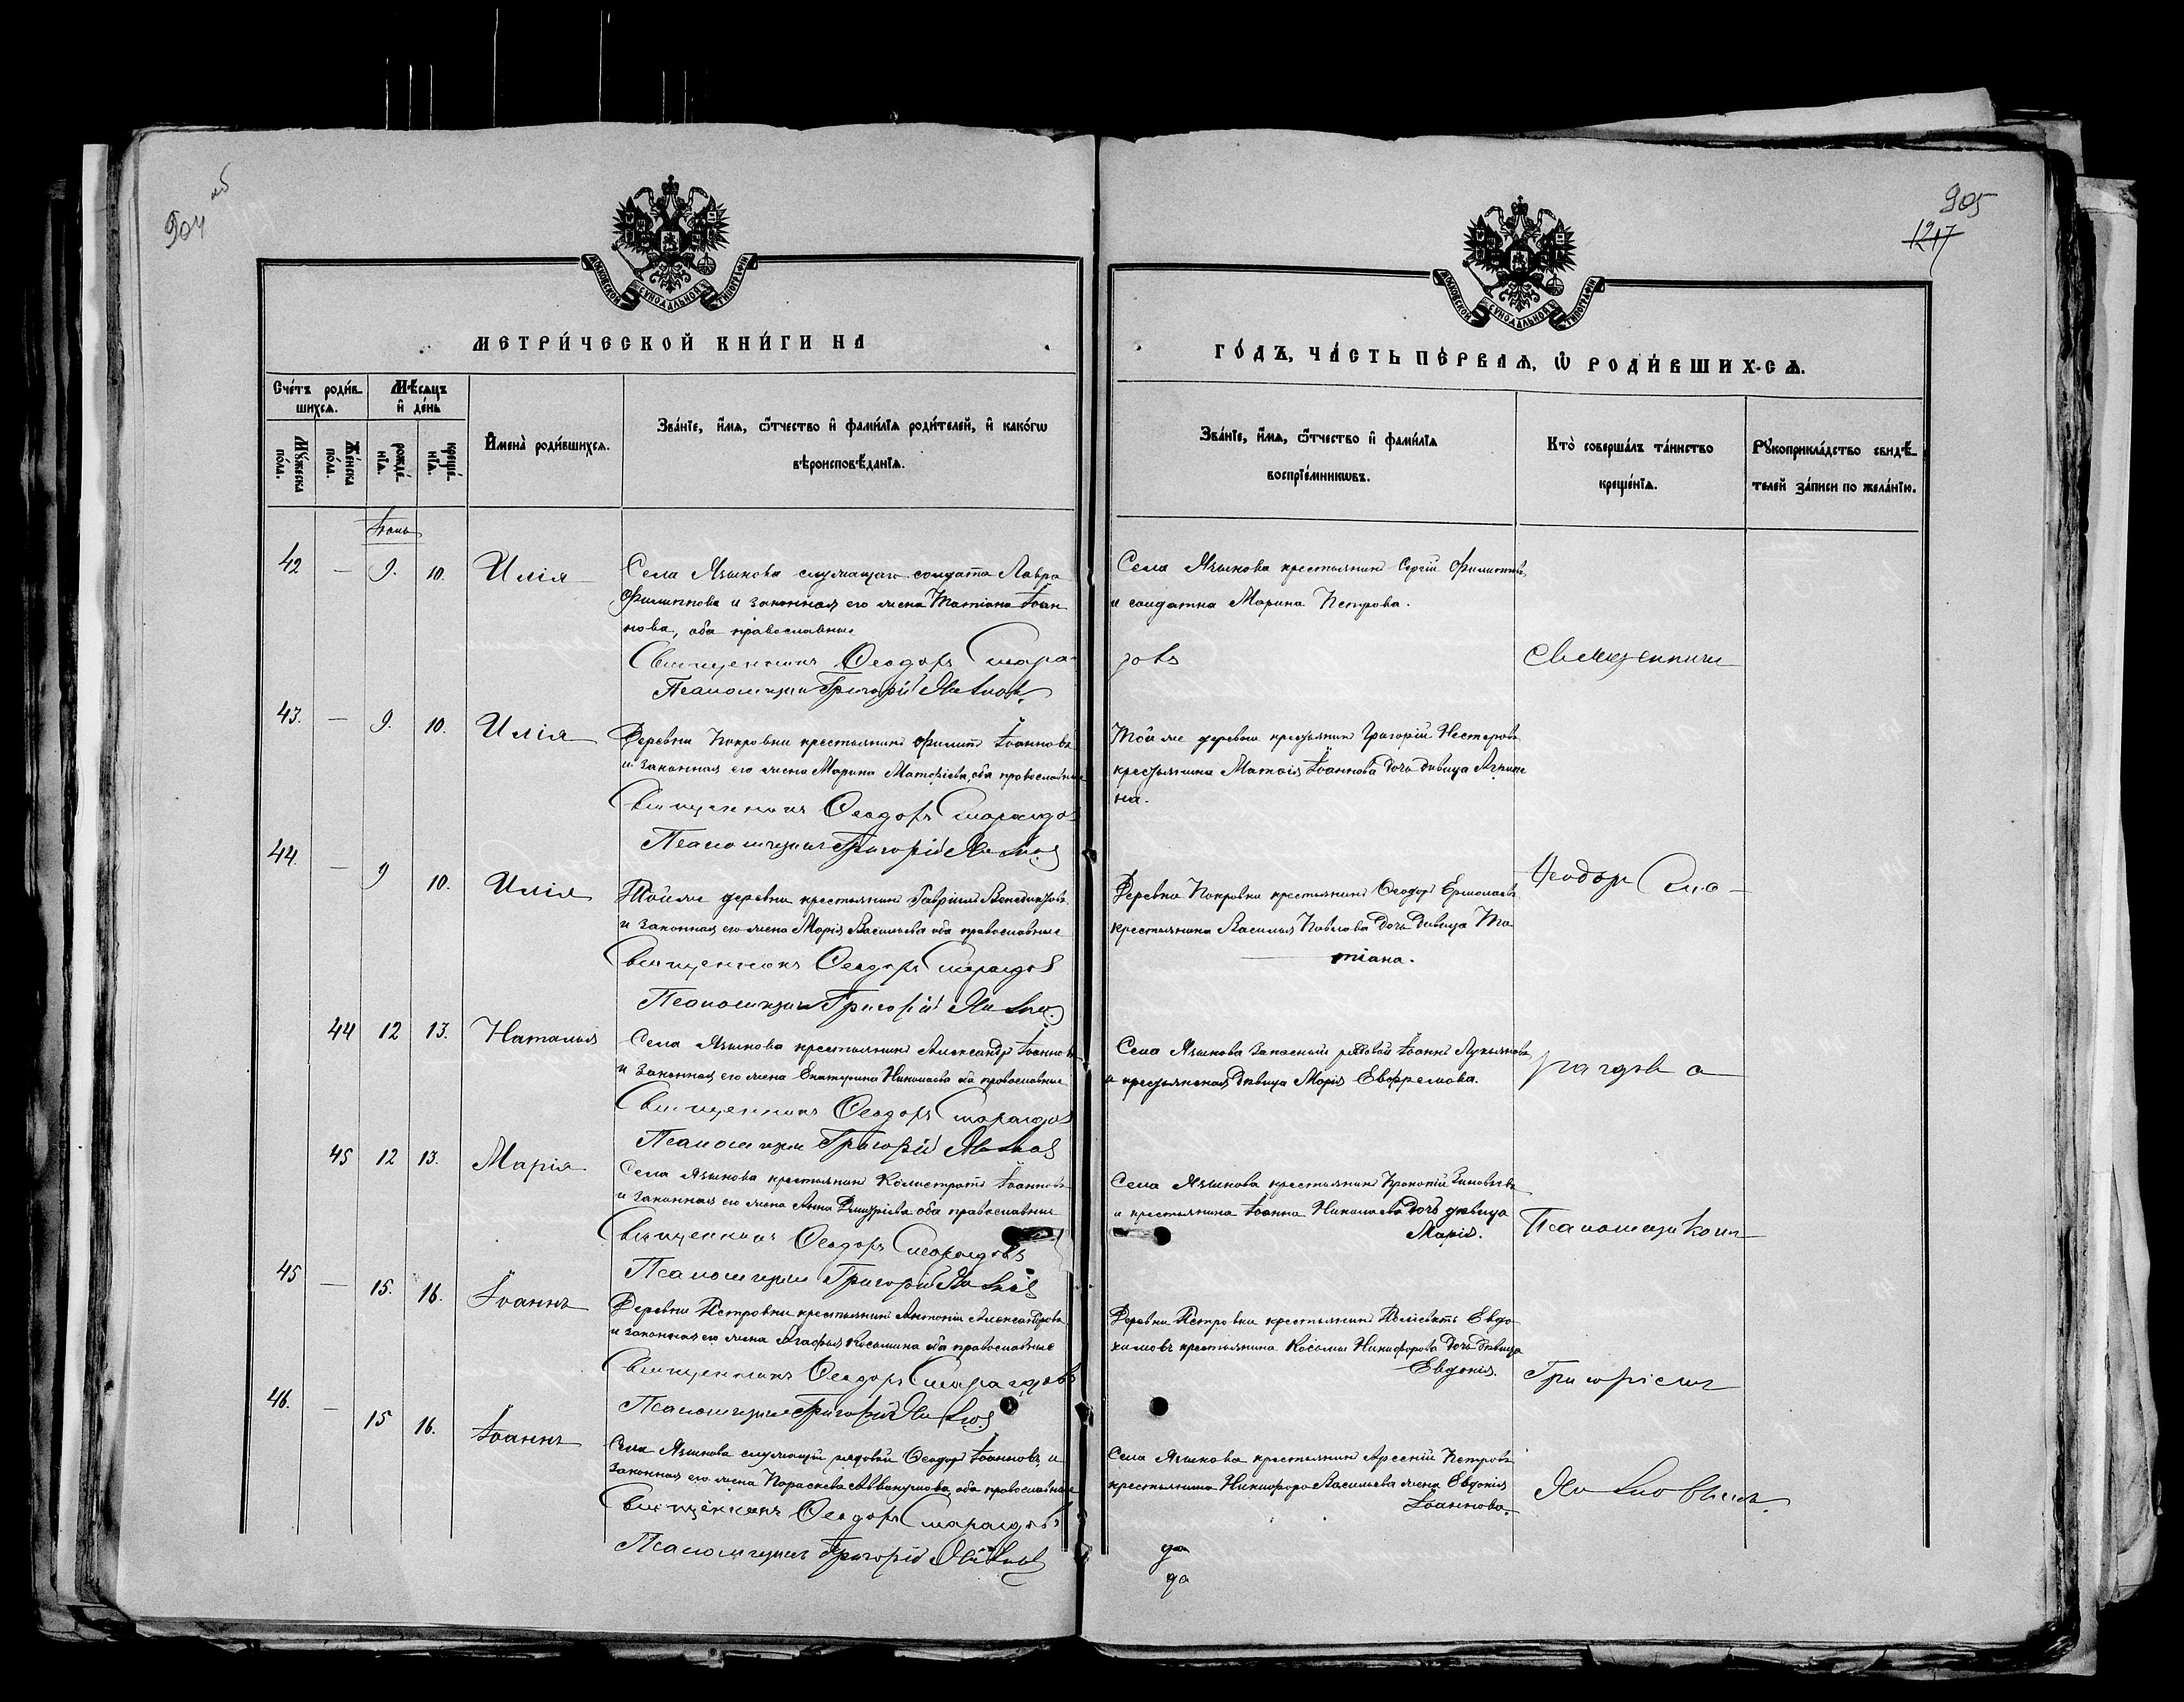 904 об
905
1217
МОСКОВСКОЙ СѴНОДАЛЬНОЙ ТИПОГРАФІИ
МЕТРИ́ЧЕСКОЙ КНИ́ГИ НА
Сче́тъ роди́в
шихсѧ.
Мѣ́сѧцъ
и҆ де́нь
Мꙋ́жеска по́ла.
Же́нска по́ла.
рожде́нїѧ.
креще́нїѧ.
И҆мена̀ роди́вшихсѧ.
Зва́нїе, и҆́мѧ, ѻ҆́тчество и҆ фами́лїѧ роди́телей, и҆ како́гѡ
вѣроисповѣ́данїѧ.
Іюль
42 — 9. 10. Илія
Села Языкова служащаго солдата Лавра
Филиппова и законная его жена Татіана Іоан
нова, оба православные
Священникъ Ѳеодоръ Смара-
Псаломщикъ Григорій
43. — 9. 10. Илія
Деревни Покровки крестьянинъ Филиппъ Іоанновъ
и законная его жена Марина Матѳіева, оба православные
Священникъ Ѳеодоръ Смарагдов
Псаломщикъ Григорій
44. — 9 10. Илія
Той же деревни крестьянинъ Гавріилъ Венедиктовъ
и законная его жена Марія Васильева оба православные
Священникъ Ѳеодоръ Смарагдов
Псаломщикъ Григорій
44 12 13. Наталія
Села Языкова крестьянинъ Александръ Іоанновъ
и законная его жена Екатерина Николаева оба православные
Священникъ Ѳеодоръ Смарагдов
Псаломщикъ Григорій
45 12 13. Марія
Села Языкова крестьянинъ Калистратъ Іоанновъ
и законная его жена Анна Димитріева оба православные
Священникъ Ѳеодоръ Смарагдовъ
Псаломщикъ Григорій
45 — 15. 16. Іоаннъ
Деревни Петровки крестьянинъ Антоній Александровъ
и законная его жена Агафья Косьмина оба православные
Священникъ Ѳеодоръ Смарагдовъ
Псаломщикъ Григорій
46. — 15 16. Іоаннъ
Села Языкова служащій рядовой Ѳеодоръ Іоанновъ, и
законная его жена Параскева Аввакумова, оба православные
Священникъ Ѳеодоръ Смарагдовъ
Псаломщикъ Григорій
МОСКОВСКОЙ СѴНОДАЛЬНОЙ ТИПОГРАФІИ
ГО́ДЪ, ЧА́СТЬ ПЕ́РВАѦ, Ѡ҆ РОДИ́ВШИХ-СѦ.
Зва́нїе, и҆́мѧ, ѻ҆́тчество и҆ фами́лїѧ
воспрїе́мникѡвъ.
Кто̀ соверша́лъ та́инство
креще́нїѧ.
Рꙋкоприкла́дство свидѣ́
телей за́писи по жела́нїю.
Села Языкова крестьянинъ Сергій Филипповъ,
и солдатка Марина Петрова.
говъ
Той же деревни крестьянинъ Григорій Нестеровъ
крестьянина Матѳія Іоаннова дочь дѣвица
на.
Деревни Покровки крестьянинъ Ѳеодоръ Ермолаевъ
крестьянина Василія Павлова дочь дѣвица Та
тіана.
Села Языкова запасный рядовой Іоаннъ Лукьяновъ
и крестьянская дѣвица Марія Евфремова.
Села Языкова крестьянинъ Прокопій Зиновьевъ
и крестьянина Іоанна Николаева дочь дѣвица
Марія.
Деревни Петровки крестьянинъ Евдо
кимовъ крестьянина Косьмы Никифорова дочь дѣвица
Евдокія.
Села Языкова крестьянинъ Арсеній Петровъ
крестьянина Никифора Васильева жена Евдокія
Іоаннова.
да
да
Священникъ
Ѳеодоръ Сма-
рагдовъ с
Псаломщикомъ
Григоріемъ